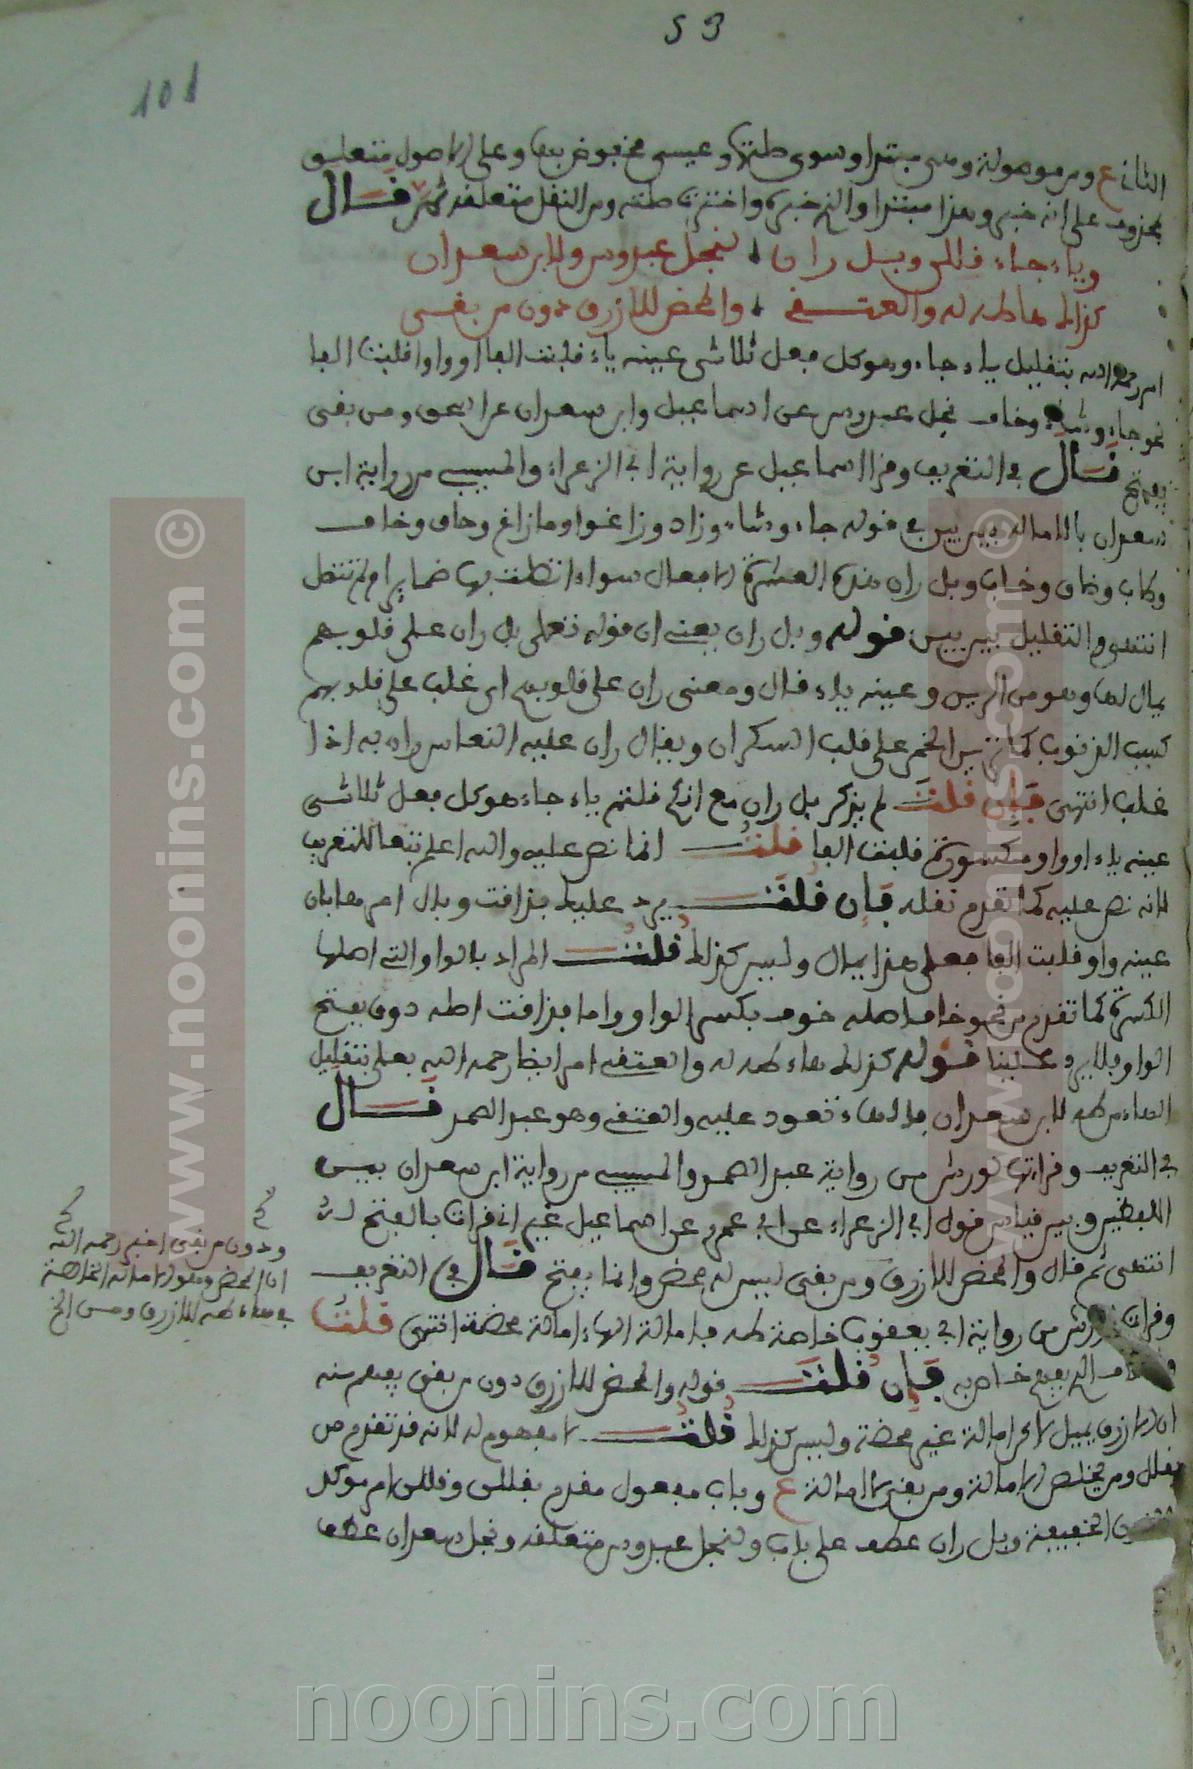 53
101
الثاني ع ومن موصولة وهي مبتدا وسوى صلتها وعيسى مخفوض بها وعلى الاصول متعلق
بمحذوف على انه خبر وهذا مبتدا والذي خبره واخترت صلته ومن النقل متعلقه ثم قال
وباء جاء قللن وبل ران لنجل عبدوس ولابن سعدان
كذاك ها طه له والعتقي والمحض للازرق دون من بقي
امر رحمه الله بتقليل باب جاء وهو كل فعل ثلاثي عينه ياء قلبت الفا او واوا قلبت الفا
نحو جاء وشاء وخاف نجل عبدوس عن اسماعيل وابن سعدان عن اسحق ومن بقي
يفتح قال في التعريف وقرا اسماعيل عن رواية ابي الزعراء والمسيبي من رواية ابن
سعدان بالامالة بين بين في قوله جاء وشاء وزاد وزاغوا وما زاغ وحاق وخاف
وطاب وضاق وخاب وبل ران هذه العشرة الافعال سواء اتصلت بها ضماير ام لم تتصل
انتهى والتقليل بين بين قوله وبل ران يعني ان قوله تعلى بل ران على قلوبهم
يمال لهما وهو من الرين وعينه ياء قال ومعنى ران على قلوبهم اي غلب على قلوبهم
كسب الذنوب كما ترين الخمر على قلب السكران ويقال ران عليه النعاس وران به اذا
غلب انتهى فإن قلت لم يذكر بل ران مع انكم قلتم باب جاء هو كل فعل ثلاثي
عينه ياء او واو مكسورة قلبت الفا قلت انما نص عليه والله اعلم تبعا للتعريف
لانه نص عليه كما تقدم نقله فإن قلت يرد عليك فزاغت وبال امرها بان
عينه واو قلبت الفا فعلى هذا يمال وليس كذلك قلت المراد بالواو التي اصلها
الكسرة كما تقدم من نحو خاف اصله خوف بكسر الواو واما فزاقت اصله ذوق بفتح
الواو فلا يرد علينا قوله كذاك هاء طه له والعتقي امر ايضا رحمه الله تعلى بتقليل
الهاء من طه لابن سعدان فالهاء تعود عليه والعتقي وهو عبد الصمد قال
في التعريف وقراتها لورش من رواية عبد الصمد والمسيبي من رواية ابن سعدان بين
اللفظين وبين قياس قول ابي الزعراء عن ابي عمر عن اسماعيل غير اني قرات بالفتح له
انتهى ثم قال والمحض للازرق ومن بقي ليس له محض وانما يفتح قال في التعريف
وقرات لورش من رواية ابي يعقوب خاصة طه بامالة الهاء امالة محضة انتهى قلت
خاص به فإن قلت قوله والمحض للازرق دون من بقي يفهم منه
ان الازرق يميل الاخر امالة غير محضة وليس كذلك قلت لا مفهوم له لانه قد تقدم من
يقلل ومن يخلص الامالة ومن بقي لا امالة ع وباب مفعول مقدم بقللن وقللن امر موكد
بالنون الخفيفة وبل ران عطف على باب ولنجل عبدوس متعلقه ونجل سعدان عطف
ودون من بقي اخبر رحمه الله
ان المحض وهو الامالة الخالصة
في هاء طه للازرق ومن الخ
© www.noonins.com
© www.noonins.com
noonins.com